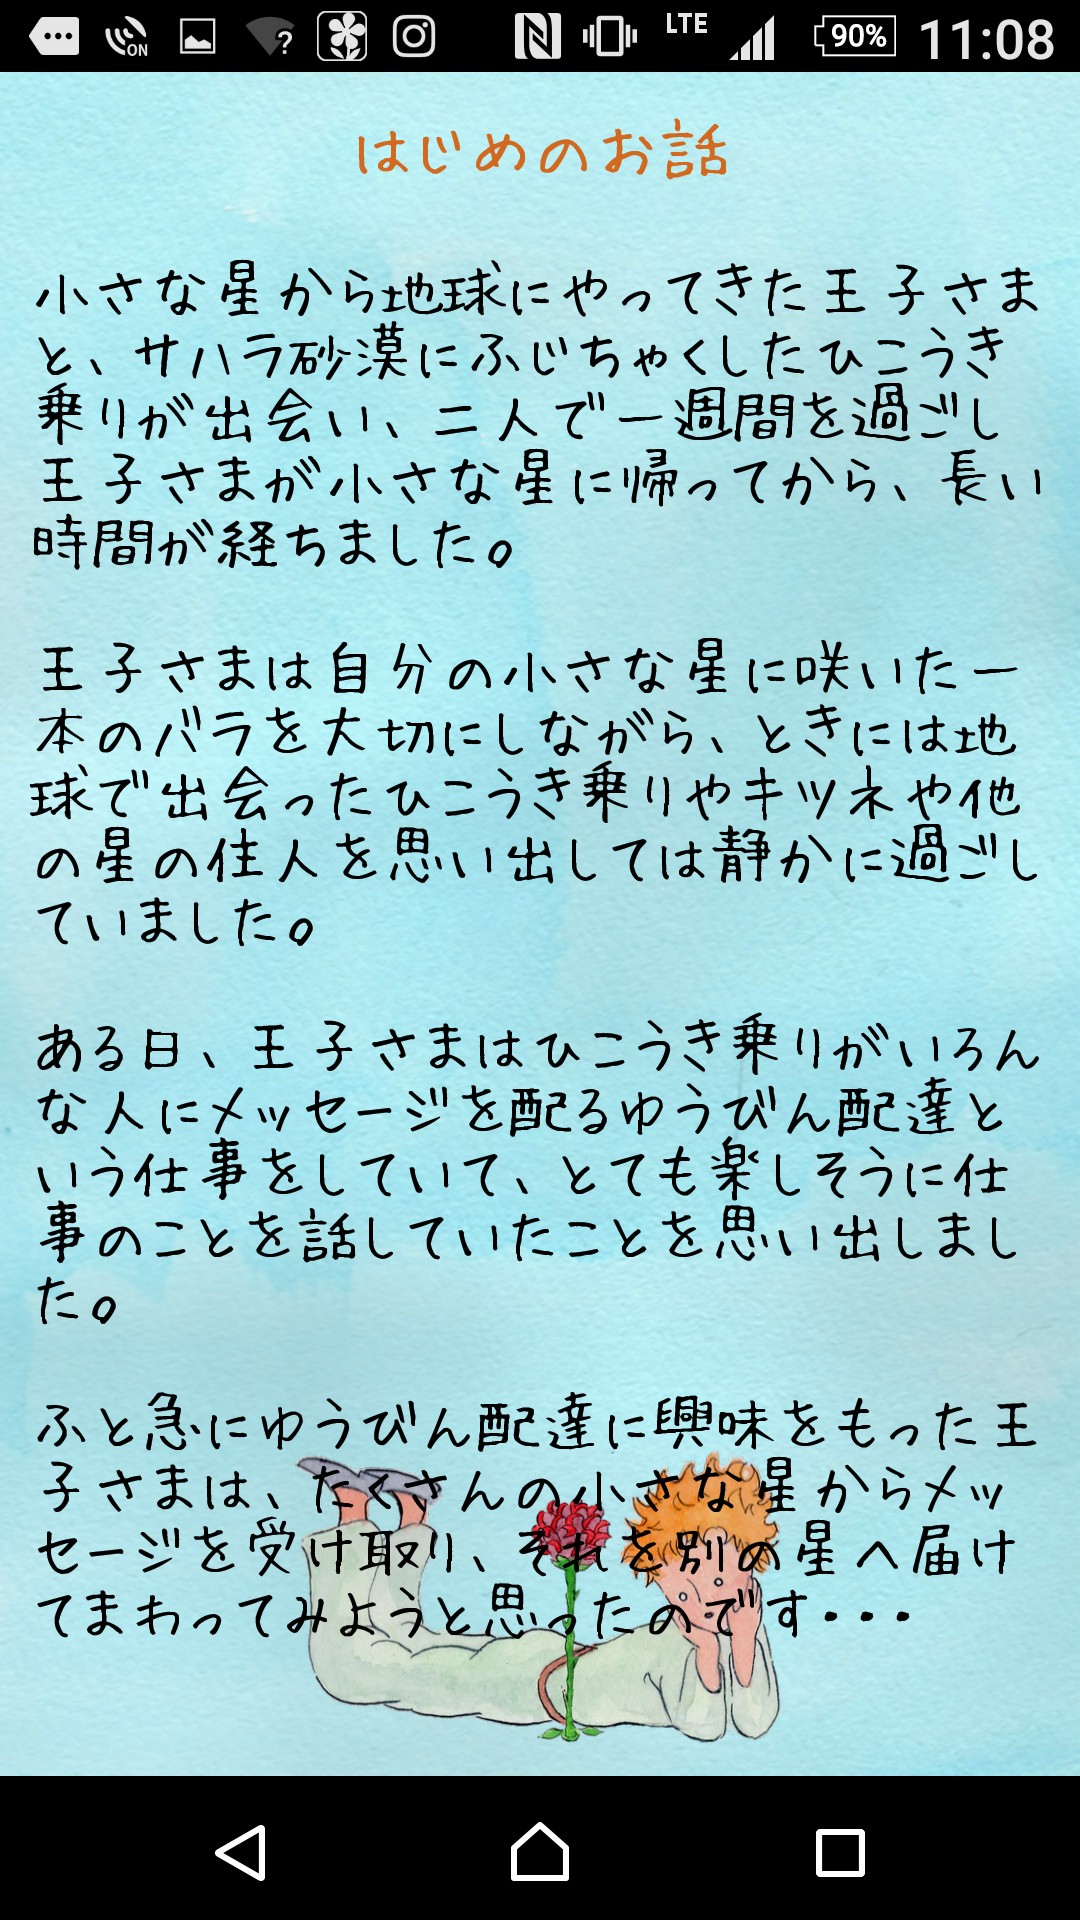 ON
?
LTE
90%
11:08
はじめのお話
小さな星から地球にやってきた王子さま
と、サハラ砂漠にふじちゃくしたひこうき
乗りが出会い、二人で一週間を過ごし
王子さまが小さな星に帰ってから、長い
時間が経ちました。
王子さまは自分の小さな星に咲いた一
本のバラを大切にしながら、ときには地
球で出会ったひこうき乗りやキツネや他
の星の住人を思い出しては静かに過ごし
ていました。
ある日、王子さまはひこうき乗りがいろん
な人にメッセージを配るゆうびん配達と
いう仕事をしていて、とても楽しそうに仕
事のことを話していたことを思い出しまし
た。
ふと急にゆうびん配達に興味をもった王
子さまは、たくさんの小さな星からメッ
セージを受け取り、それを別の星へ届け
てまわってみようと思ったのです・・・